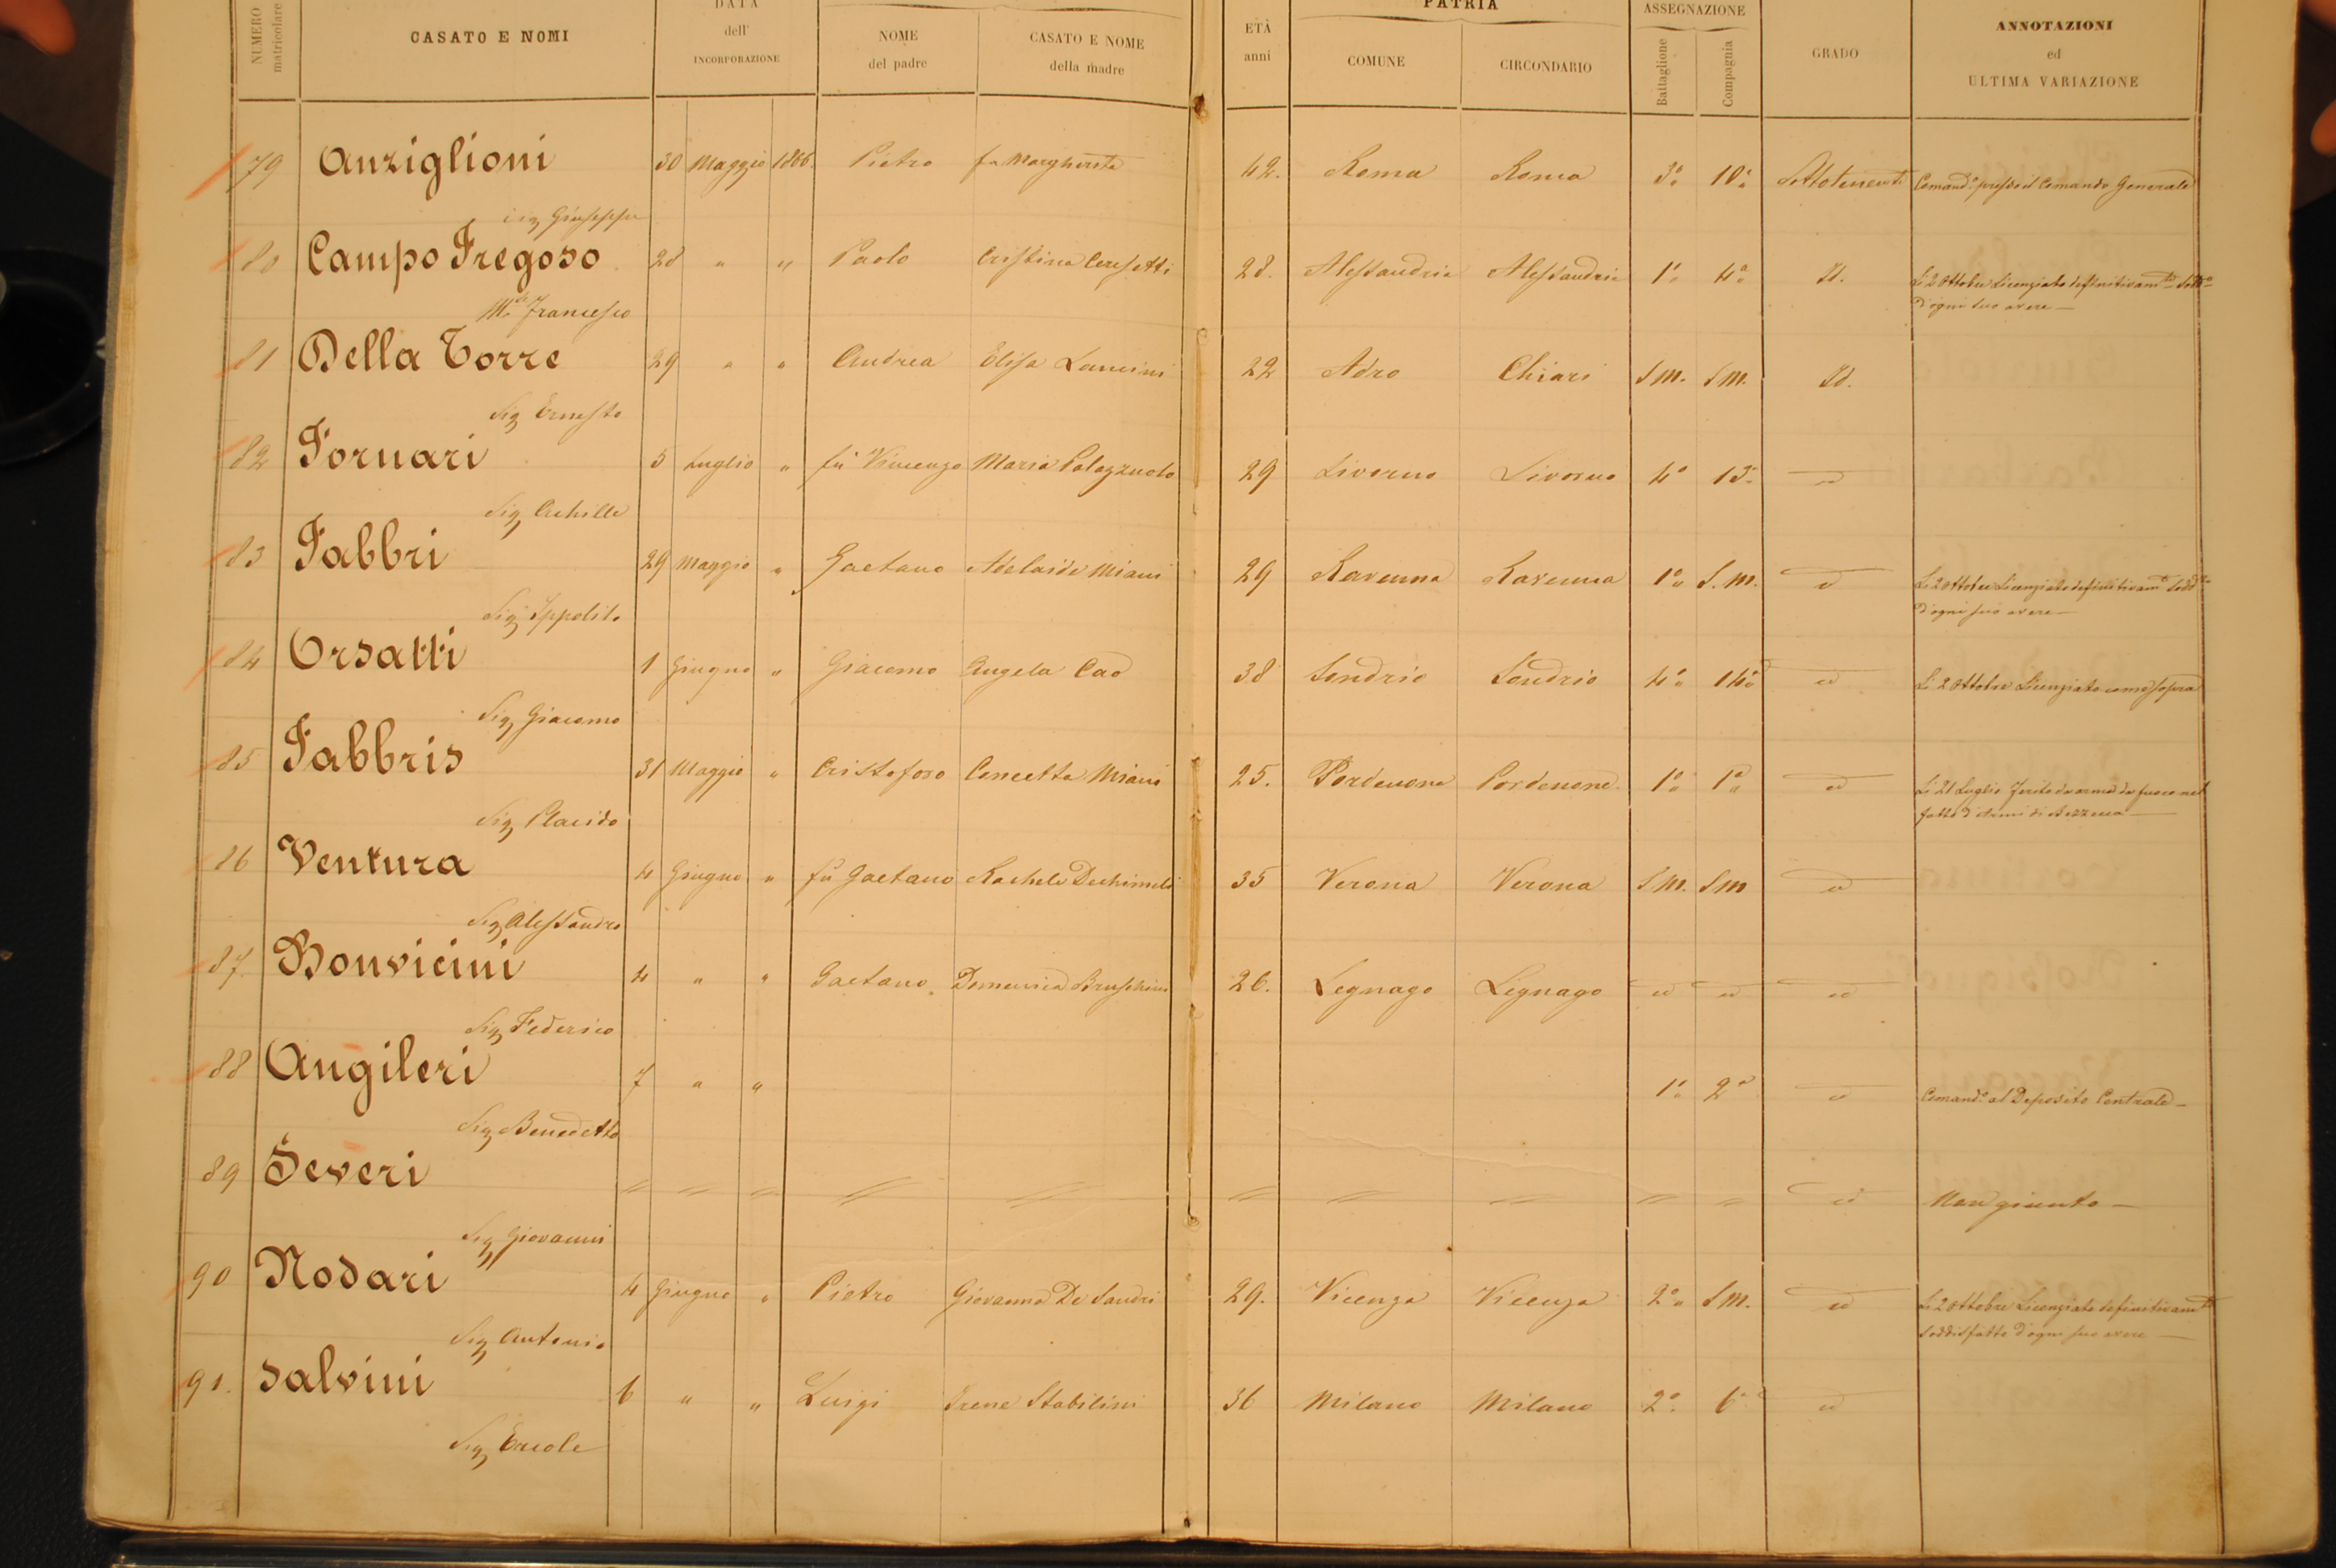 NUMERO matricolare CASATO E NOMI DATA dell' INCORPORAZIONE NOME del padre CASATO E NOME della madre ETÀ anni PATRIA COMUNE CIRCONDARIO ASSEGNAZIONE Battaglione Compagnia GRADO ANNOTAZIONI ed ULTIMA VARIAZIONE
79 Anziglioni 30 Maggio 1866. Pietro fu Margherita 42. Roma Roma 3° 10ª Sottotenente Comand° presso il Comando Generale
Sig Giuseppe
80 Campo Fregoso 28 " " Paolo Cristina 28. Alessandria Alessandria 1° 4ª Id. Li 2 Ottobre Licenziato definitivam.te
Francesco d'ogni suo avere —
81 Della Torre 29 " " Andrea Elisa Lancini 22 Adro Chiari S.M. S.M. Id.
Sig Ernesto
82 Fornari 5 Luglio " fu Vincenzo Maria Palazzuolo 29 Livorno Livorno 4° 13ª id
Sig Achille
83 Fabbri 29 Maggio " Gaetano Adelaide Miani 29 Ravenna Ravenna 1° S.M. id Li 2 Ottobre Licenziato definitivam.te
Sig Ippolito d'ogni suo avere —
84 Orsatti 1 Giugno " Giacomo Angela Cao 38 Sondrio Sondrio 4° 14ª id Li 2 Ottobre Licenziato come sopra
Sig Giacomo
85 Fabbris 31 Maggio " Cristoforo Concetta Miani 25. Pordenone Pordenone 1° 1ª id Li 21 Luglio ferito da arma da fuoco nel
Sig Placido fatto d'armi di Bezzecca —
86 Ventura 4 Giugno " fu Gaetano Rachele 35 Verona Verona S.M. S.M id
Sig Alessandro
87. Bonvicini 4 " " Gaetano Domenica 26. Legnago Legnago id id id
Sig Federico
88 Angileri 7 " " 1° 2ª id Comand° al Deposito Centrale —
Sig Benedetto
89 Severi id Non giunto —
Sig Giovanni
90 Nodari 4 Giugno " Pietro Giovanna De Sandri 29. Vicenza Vicenza 2° S.M. id Li 2 Ottobre Licenziato definitivam.te
Sig Antonio soddisfatto d'ogni suo avere —
91. Salvini 6 " " Luigi Irene Stabilini 36 Milano Milano 2° 6ª id
Sig Ercole